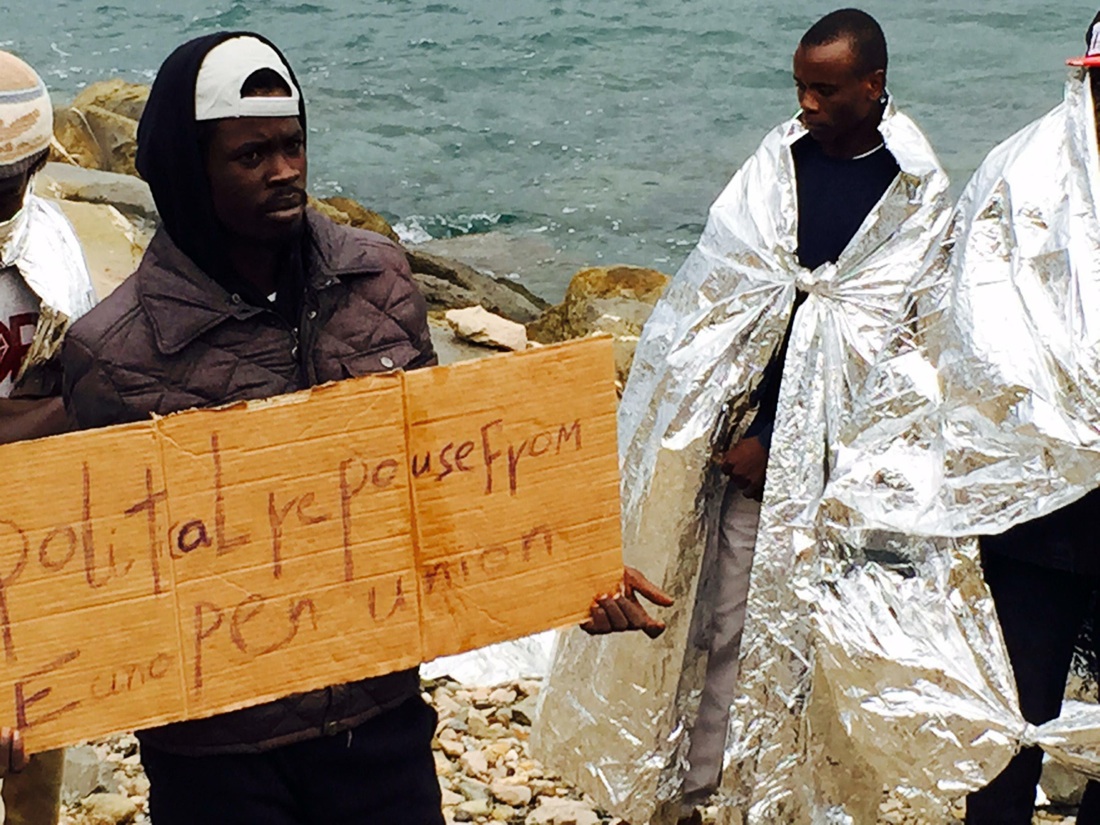 polital repouse From
E uno pen union